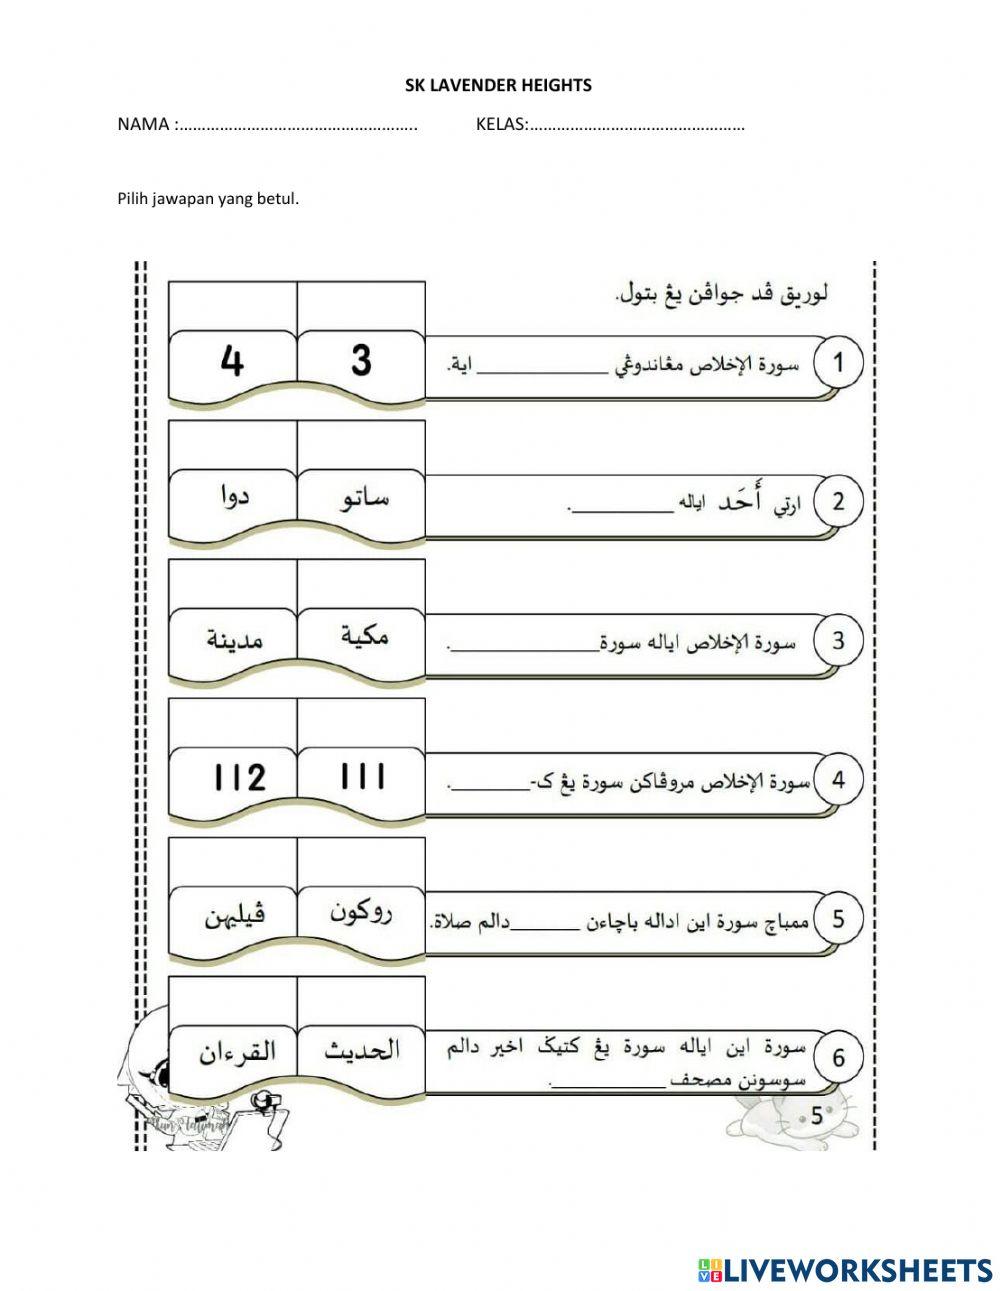 SK LAVENDER HEIGHTS
NAMA :…………………………………………….. KELAS:…………………………………………
Pilih jawapan yang betul.
لوريق ڤد جواڤن يڠ بتول.
1 سورة الإخلاص مڠاندوڠي ____________ اية.
3 4
2 ارتي أَحَد اياله __________.
ساتو دوا
3 سورة الإخلاص اياله سورة______________.
مكية مدينة
4 سورة الإخلاص مروڤاكن سورة يڠ ک-________.
111 112
5 ممباچ سورة اين اداله باچاءن _______دالم صلاة.
روكون ڤيليهن
6 سورة اين اياله سورة يڠ كتيݢ اخير دالم
سوسونن مصحف ___________.
الحديث القرءان
5
LIVEWORKSHEETS